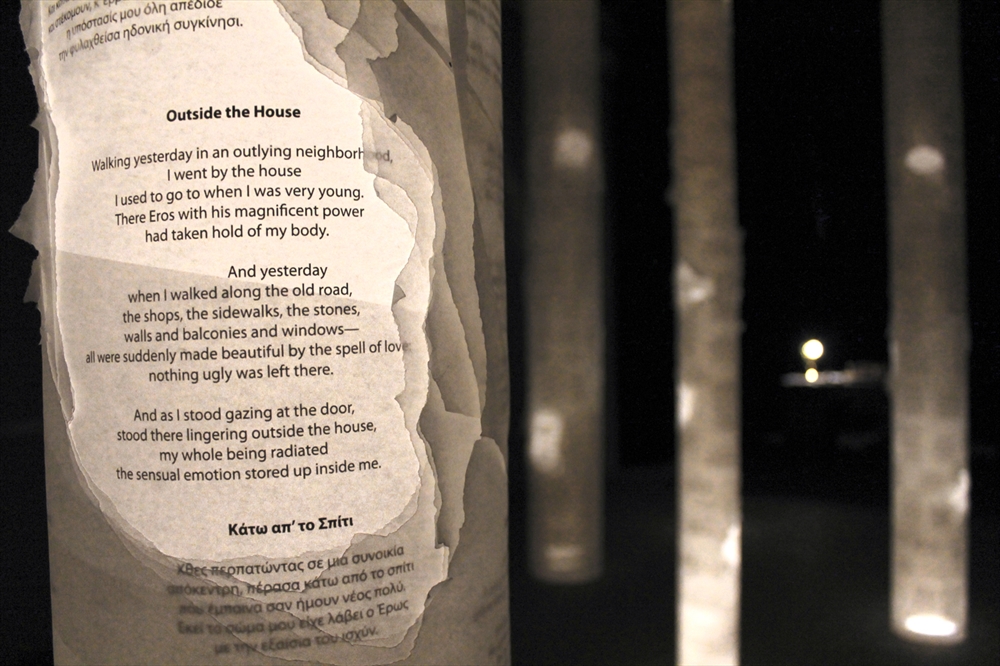 και στέκομουν, κ' ερ
η υπόστασίς μου όλη απέδιδε
την φυλαχθείσα ηδονική συγκίνησι.
Outside the House
Walking yesterday in an outlying neighborhood,
I went by the house
I used to go to when I was very young.
There Eros with his magnificent power
had taken hold of my body.
And yesterday
when I walked along the old road,
the shops, the sidewalks, the stones,
walls and balconies and windows—
all were suddenly made beautiful by the spell of love
nothing ugly was left there.
And as I stood gazing at the door,
stood there lingering outside the house,
my whole being radiated
the sensual emotion stored up inside me.
Κάτω απ' το Σπίτι
Χθες περπατώντας σε μιά συνοικία
απόκεντρη, πέρασα κάτω από το σπίτι
που έμπαινα σαν ήμουν νέος πολύ.
Εκεί το σώμα μου είχε λάβει ο Έρως
με την εξαίσια του ισχύν.